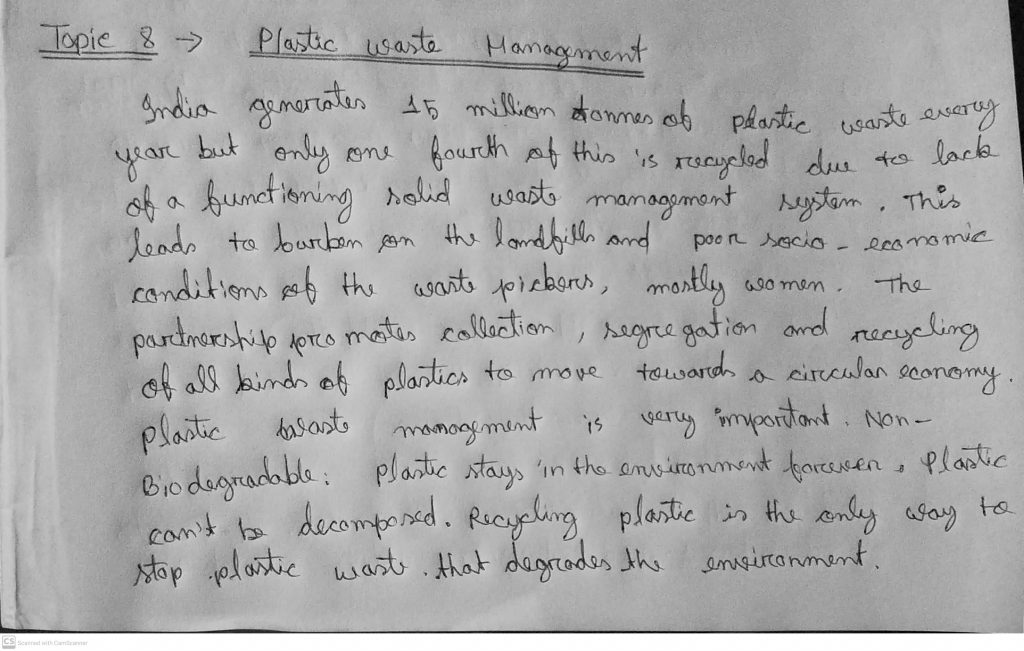 Topic 8 → Plastic waste Management
India generates 15 million tonnes of plastic waste every
year but only one fourth of this is recycled due to lack
of a functioning solid waste management system. This
leads to burben on the landfills and poor socio-economic
conditions of the waste pickers, mostly women. The
partnership promotes collection, segregation and recycling
of all kinds of plastics to move towards a circular economy.
Plastic waste management is very important. Non-
Biodegradable: Plastic stays in the environment forever, Plastic
can't be decomposed. Recycling plastic is the only way to
stop plastic waste. that degrades the environment.
CS Scanned with CamScanner